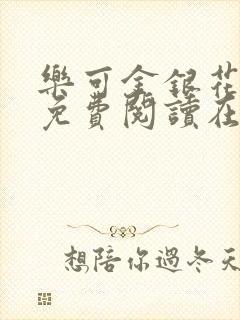 樂可金銀花
免費閱讀在
想陪你過冬天